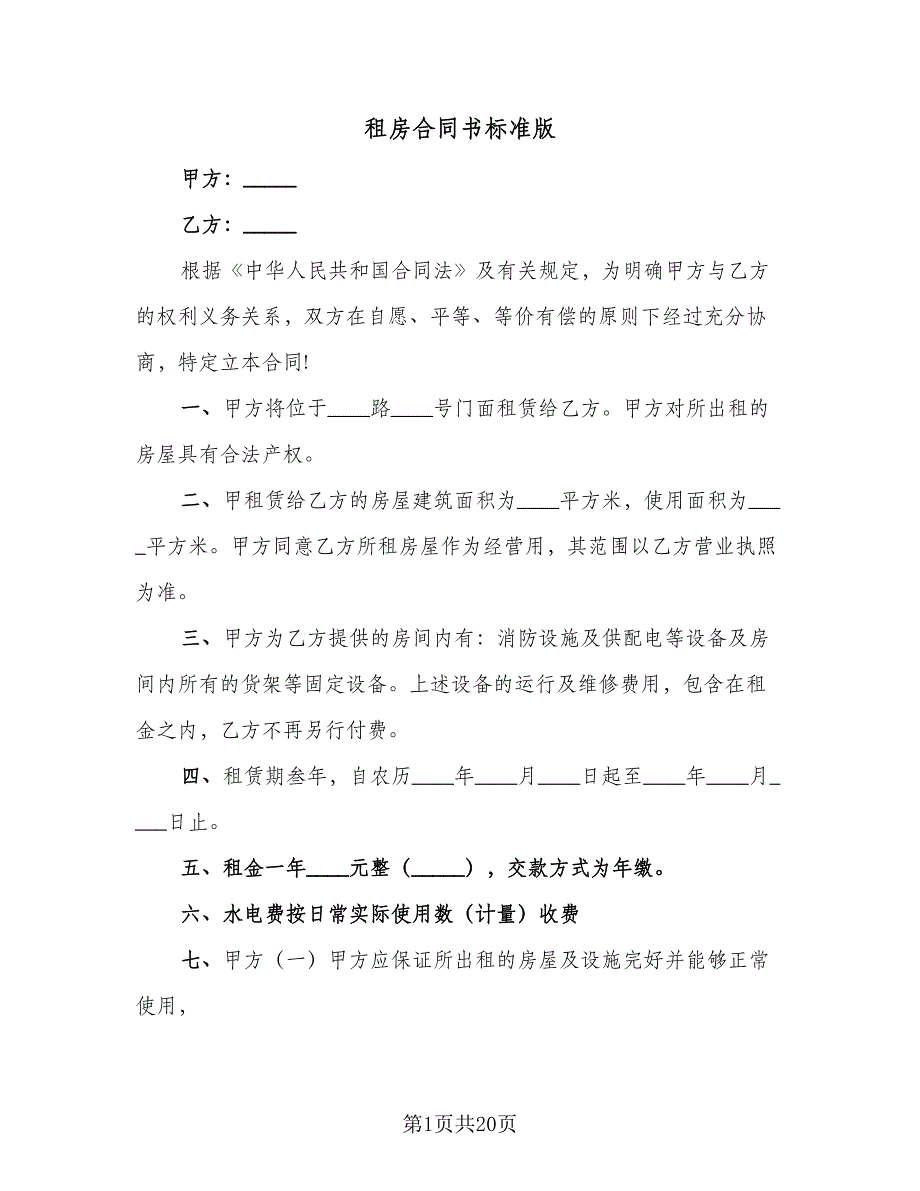 租房合同书标准版
甲方：_____
乙方：_____
根据《中华人民共和国合同法》及有关规定，为明确甲方与乙方
的权利义务关系，双方在自愿、平等、等价有偿的原则下经过充分协
商，特定立本合同!
一、甲方将位于____路____号门面租赁给乙方。甲方对所出租的
房屋具有合法产权。
二、甲租赁给乙方的房屋建筑面积为____平方米，使用面积为___
_平方米。甲方同意乙方所租房屋作为经营用，其范围以乙方营业执照
为准。
三、甲方为乙方提供的房间内有：消防设施及供配电等设备及房
间内所有的货架等固定设备。上述设备的运行及维修费用，包含在租
金之内，乙方不再另行付费。
四、租赁期叁年，自农历____年____月____日起至____年____月_
___日止。
五、租金一年____元整（_____），交款方式为年缴。
六、水电费按日常实际使用数（计量）收费
七、甲方（一）甲方应保证所出租的房屋及设施完好并能够正常
使用，
第1页共20页